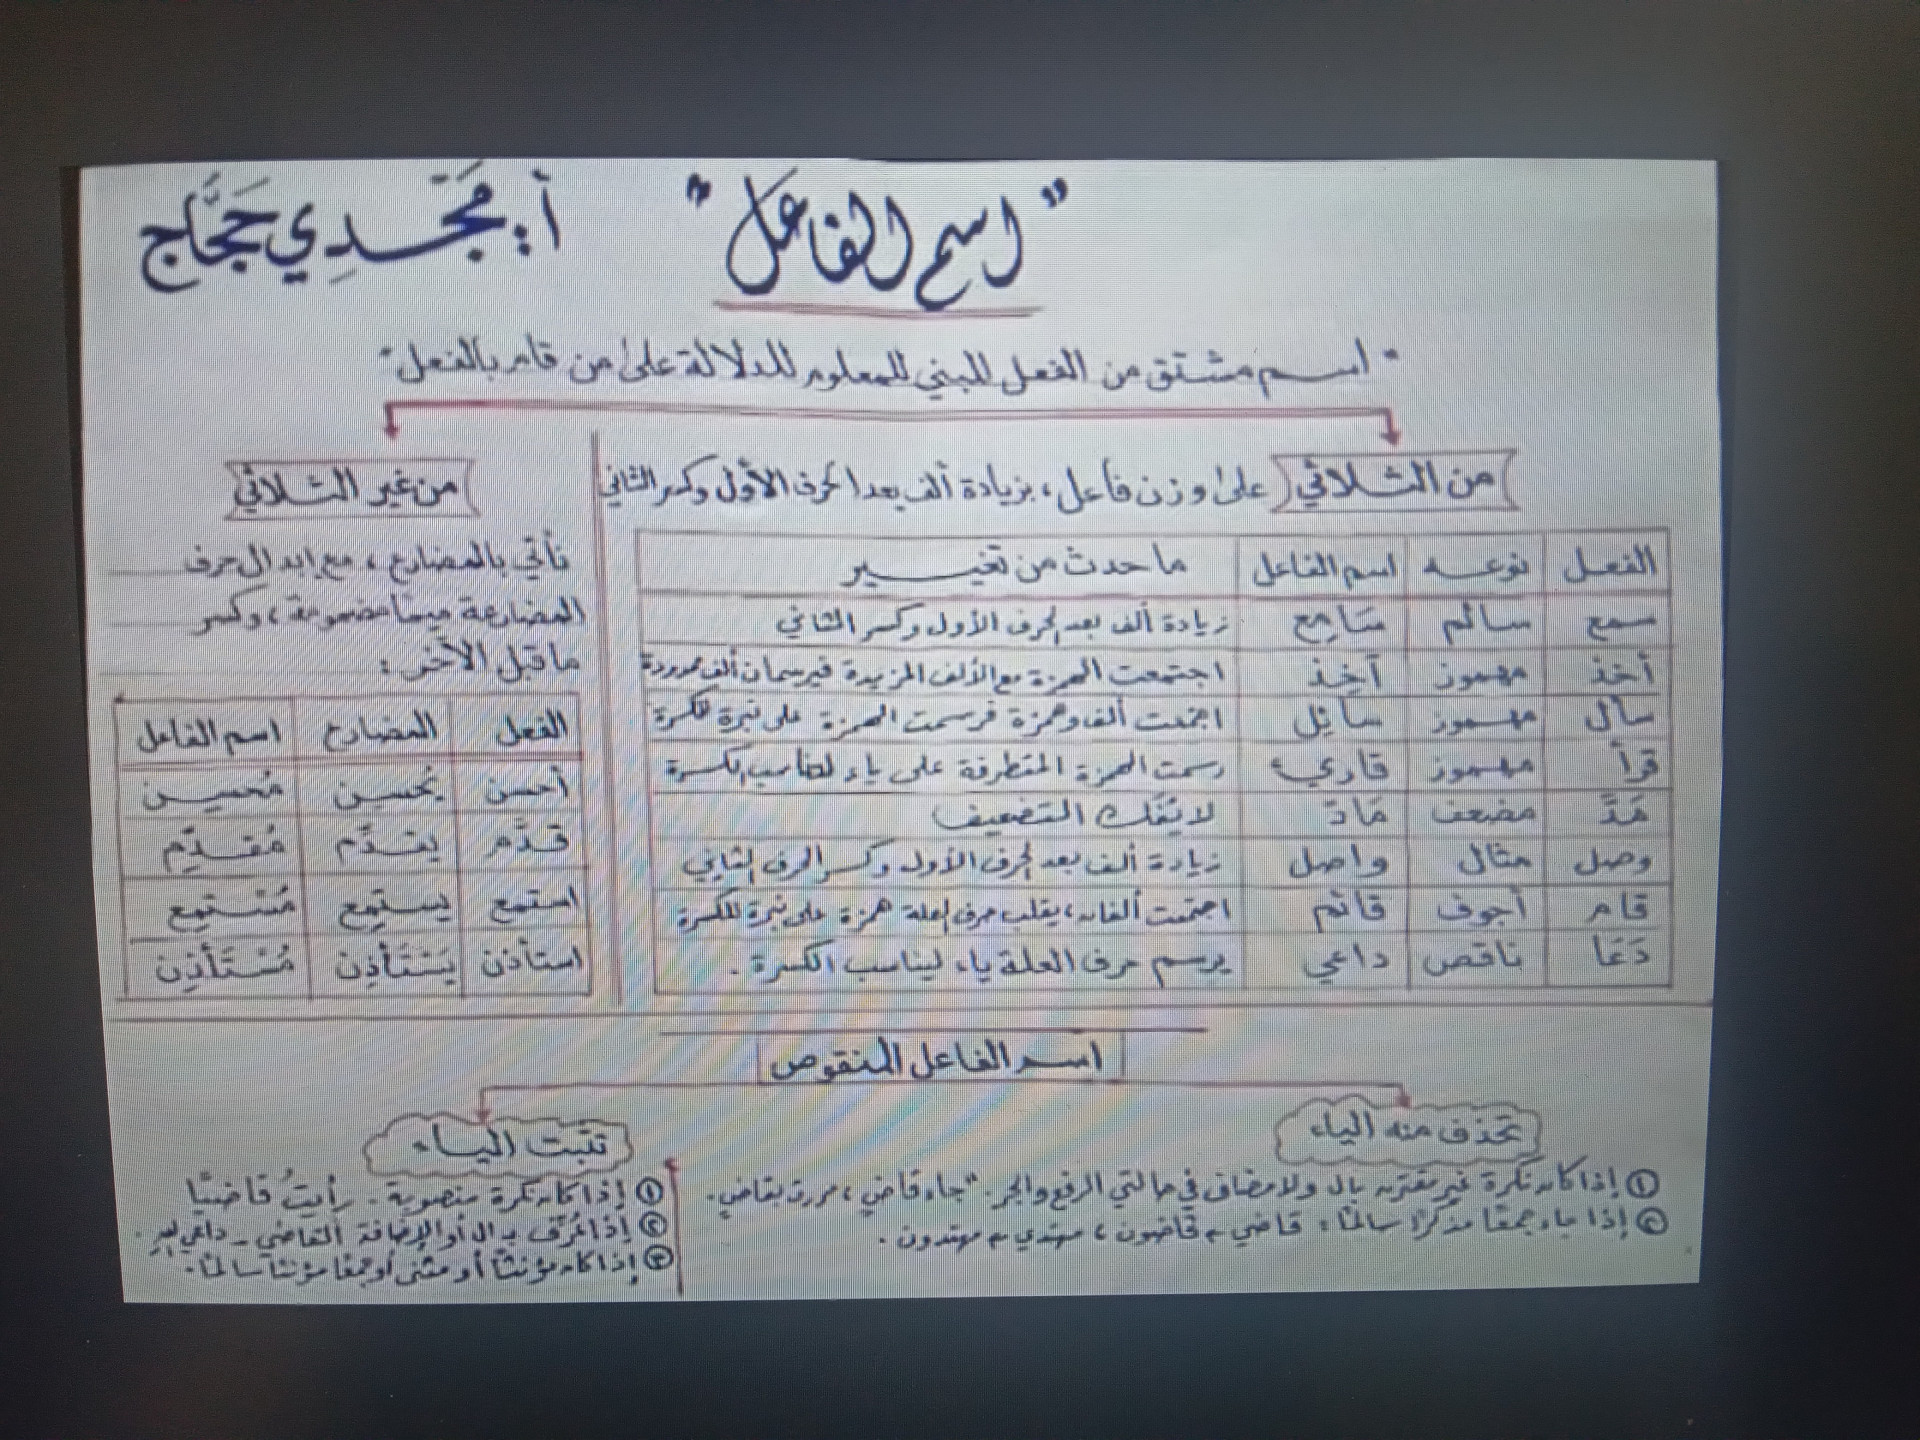 "اسم الفاعل"
أ. مَجْدِي حَجَّاج
"اسم مشتق من الفعل المبني للمعلوم للدلالة على من قام بالفعل"
من الثلاثي على وزن فاعل، بزيادة ألف بعد الحرف الأول وكسر الثاني
الفعل نوعه اسم الفاعل ما حدث من تغيير
سمع سالم سَامِع زيادة ألف بعد الحرف الأول وكسر الثاني
أخذ مهموز آخِذ اجتمعت الهمزة مع الألف المزيدة فيرسمان ألف ممدودة
سأل مهموز سائِل اجتمعت ألف وهمزة فرسمت الهمزة على نبرة للكسرة
قرأ مهموز قارئ رسمت الهمزة المتطرفة على ياء لتناسب الكسرة
مَدَّ مضعف مَادّ لا يُفَك التضعيف
وصل مثال واصل زيادة ألف بعد الحرف الأول وكسر الحرف الثاني
قام أجوف قائم اجتمعت ألفان، يقلب حرف العلة همزة على نبرة للكسرة
دَعَا ناقص داعي يرسم حرف العلة ياء ليناسب الكسرة.
من غير الثلاثي
نأتي بالمضارع، مع إبدال حرف
المضارعة ميمًا مضمومة، وكسر
ما قبل الآخر:
الفعل المضارع اسم الفاعل
أحسن يُحسِن مُحسِن
قدَّم يقدِّم مُقدِّم
استمع يستمِع مُسْتمِع
استأذن يَسْتَأذِن مُسْتَأذِن
اسم الفاعل المنقوص
تحذف منه الياء
① إذا كان نكرة غير مقترن بال ولا مضاف في حالتي الرفع والجر. "جاء قاضٍ، مررت بقاضٍ.
② إذا جاء جمعًا مذكرًا سالمًا: قاضي ← قاضون، مهتدي ← مهتدون.
تثبت الياء
① إذا كان نكرة منصوبة. رأيتُ قاضيًا
② إذا عُرِّف بـ ال أو الإضافة القاضي - داعي
③ إذا كان مؤنثًا أو مثنى أو جمعًا مؤنثًا سالمًا.